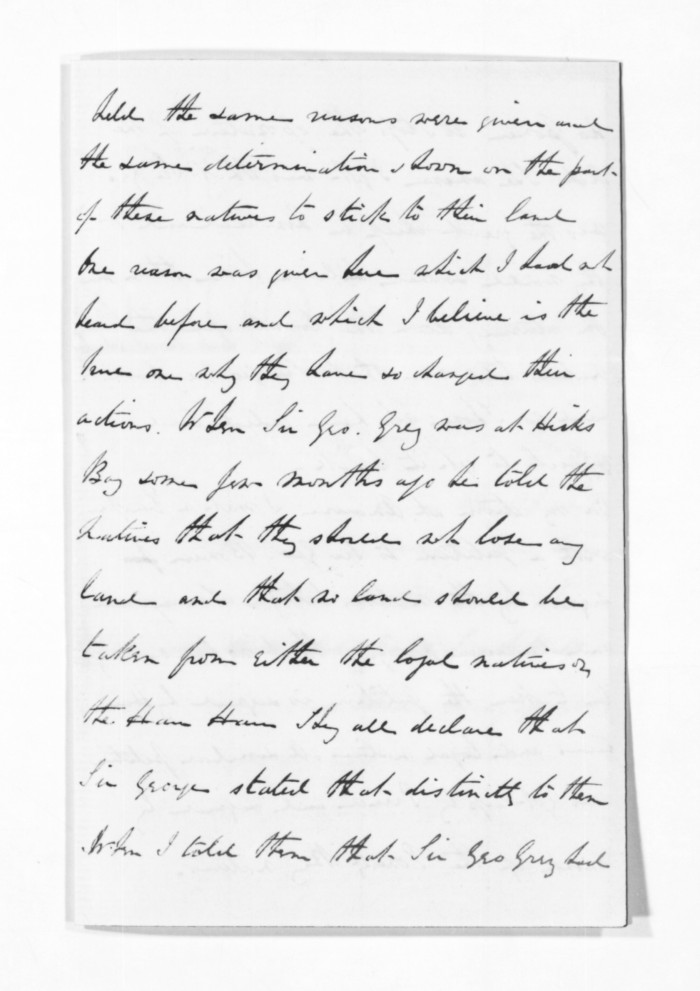 held the same reasons were given and
the same determination shown on the part
of these natives to stick to their land
One reason was given here which I had not
heard before and which I believe is the
true one why they have so changed their
actions. When Sir Geo. Grey was at Hicks
Bay some few months ago he told the
natives that they should not lose any
land and that no land should be
taken from either the loyal natives or
the Hau Hau They all declare that
Sir George stated that distinctly to them
When I told them that Sir Geo Grey had